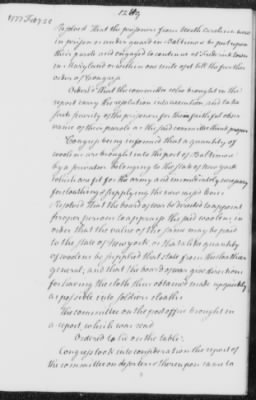 1777 Feby 20
Resolved That the prisoners from North Carolina now
in prison or under guard in Baltimore be put upon
their parole and engaged to continue at Frederick town
in Maryland or within one mile of it till the farther
order of Congress
Ordered That the committee who brought in the
report carry the resolution into execution and take
such parole of the prisoners for the faithful obser
vance of their parole as the said committee think proper
Congress being informed that a quantity of
woolens are brought into the port of Baltimore
by a privateer belonging to the state of New york
which are fit for the army and immediately necessary
for cloathing & supplying the new regiments
Resolved That the board of war be directed to appoint
proper persons to appraise the said woolens, in
order that the value of the same may be paid
to the state of New york, or that a like quantity
of woolens be supplied that state from the clothier
general; and that the board of war give directions
for having the cloth thus obtained made up speedily
as possible into soldiers cloaths
The committee on the post office brought in
a report, which was read
Ordered to lie on the table.
Congress took into consideration the report of
the committee on deserters & thereupon came to